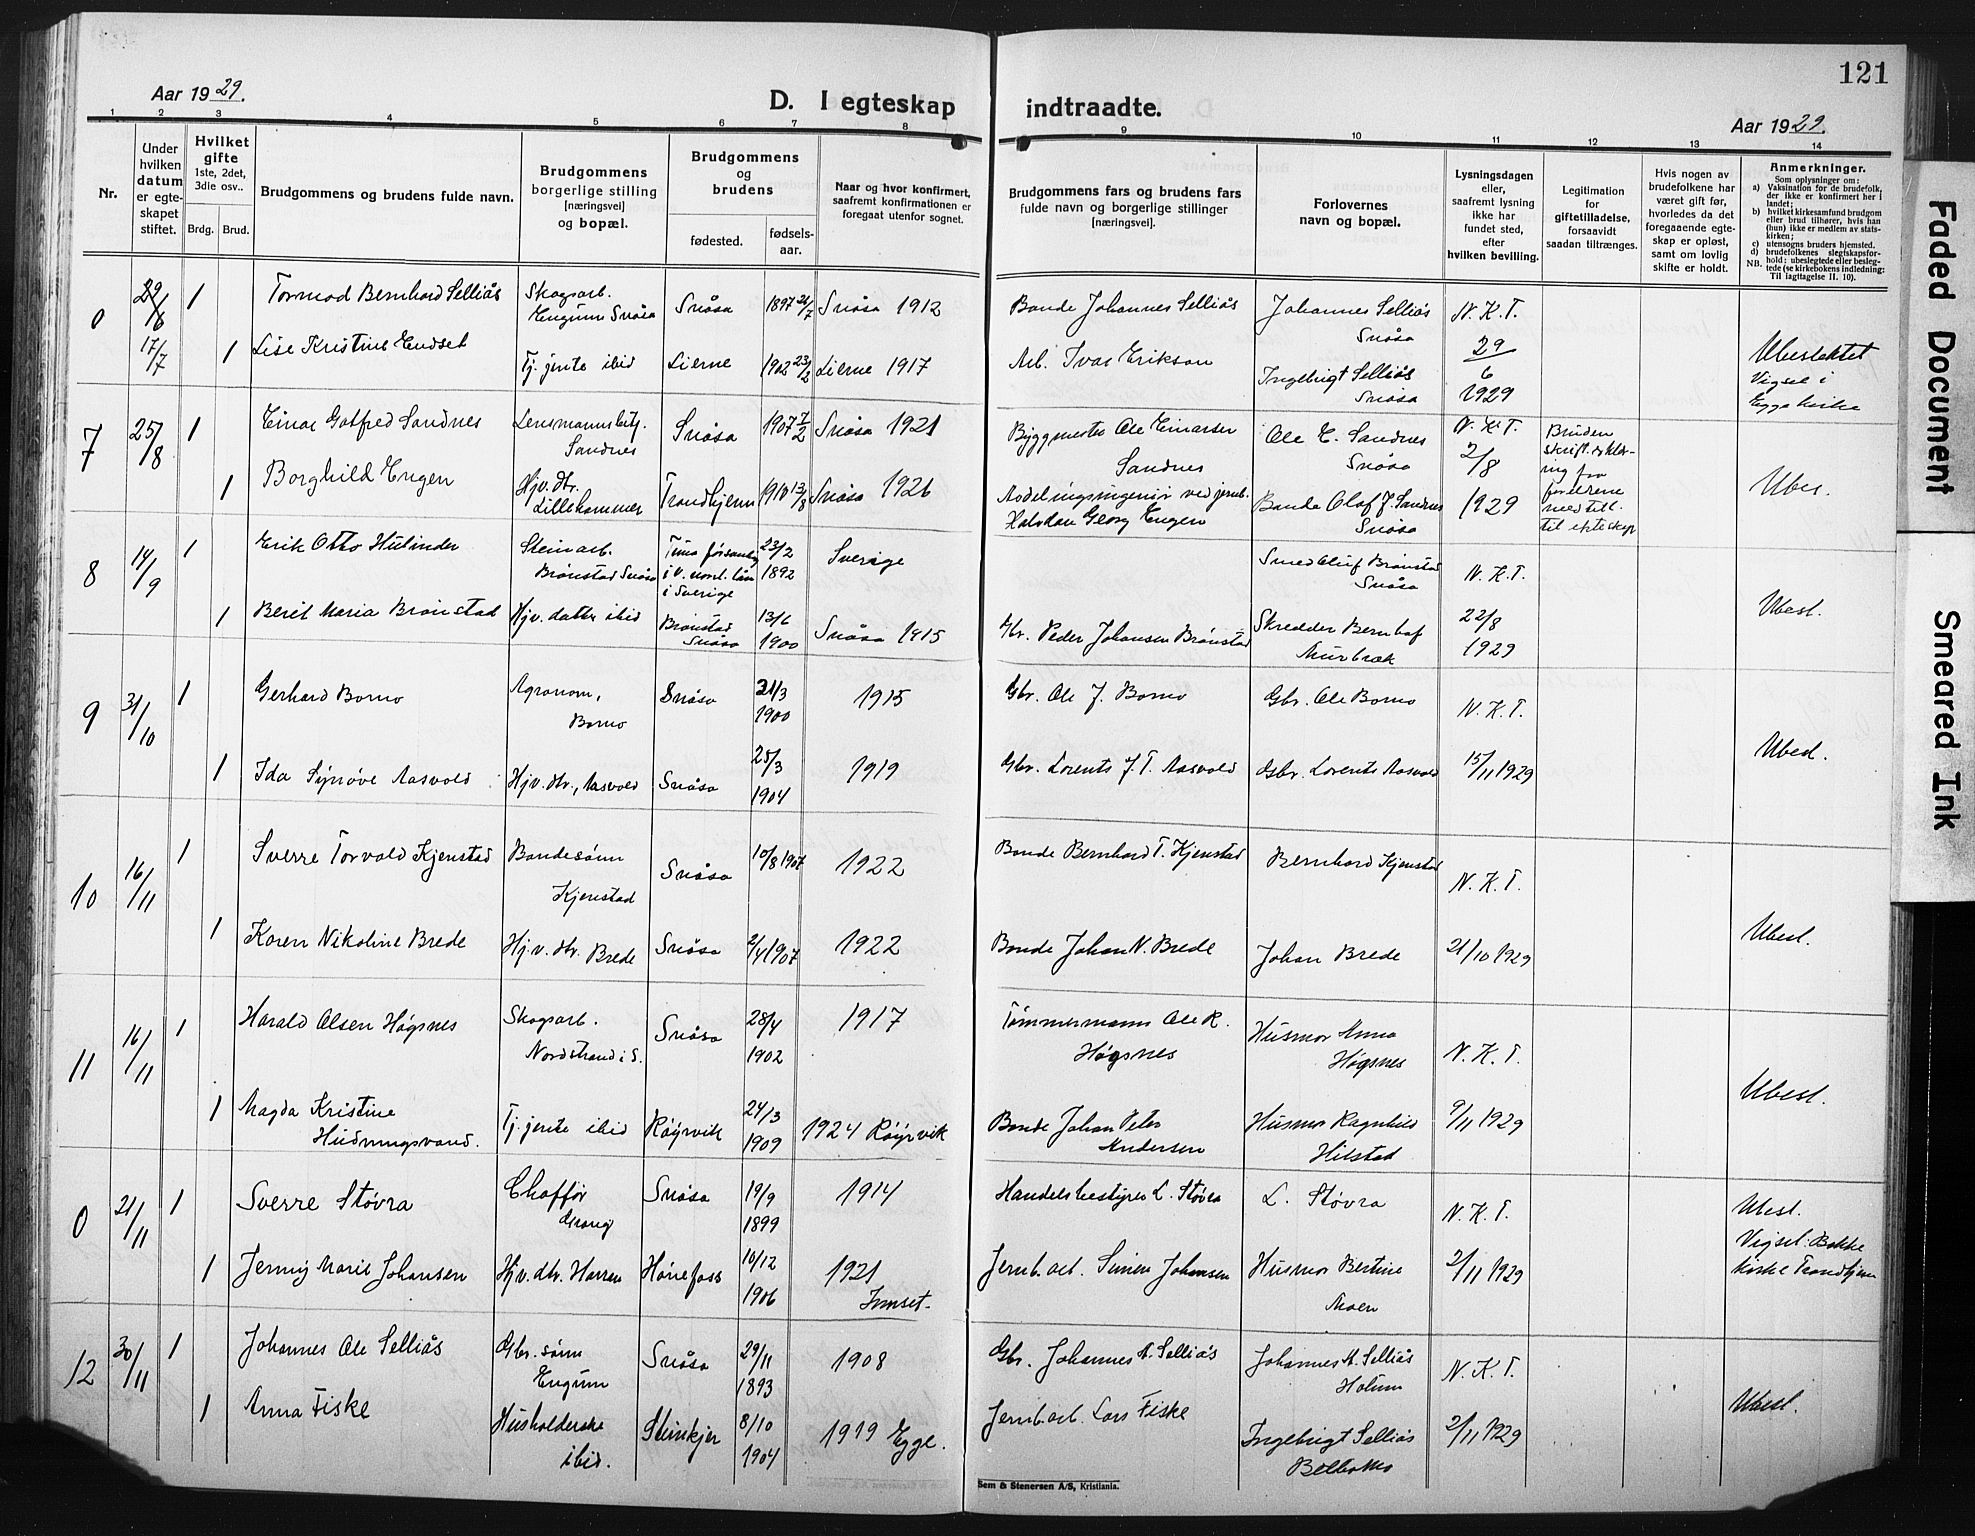 121
Aar 1929.
D. I egteskap
indtraadte.
Aar 1929.
1 2 3 4 5 6 7 8 9 10 11 12 13 14
Nr.
Under
hvilken
datum
er egte-
skapet
stiftet.
Hvilket
gifte
1ste, 2det,
3die osv..
Brdg. Brud.
Brudgommens og brudens fulde navn.
Brudgommens
borgerlige stilling
[næringsvei]
og bopæl.
Brudgommens
og
brudens
fødested.
fødsels-
aar.
Naar og hvor konfirmert,
saafremt konfirmationen er
foregaat utenfor sognet.
Brudgommens fars og brudens fars
fulde navn og borgerlige stillinger
[næringsvei].
Forlovernes
navn og bopæl.
Lysningsdagen
eller,
saafremt lysning
ikke har
fundet sted,
efter
hvilken bevilling.
Legitimation
for
giftetilladelse,
forsaavidt
saadan tiltrænges.
Hvis nogen av
brudefolkene har
været gift før,
hvorledes da det
foregaaende egte-
skap er opløst,
samt om lovlig
skifte er holdt.
Anmerkninger.
Som oplysninger om:
a) Vaksination for de brudefolk,
der ikke er konfirmert her i
landet;
b) hvilket kirkesamfund brudgom
eller brud tilhører, hvis han
(hun) ikke er medlem av stats-
kirken;
c) utensogns bruders hjemsted.
d) brudefolkenes slegtskapsfor-
hold: ubeslegtede eller besleg-
NB. tede (se kirkebokens indledning:
Til iagttagelse II. 10).
0 29/6 1 Tormod Bernhard Selliås Skogsarb. Engum Snåsa Snåsa 1897 Snåsa 1912 Bonde Johannes Selliås Johannes Selliås Snåsa N. K. T.
17/7 1 Lise Kristine Endset Tj. jente ibid Lierne 1902 23/2 Lierne 1917 Arb. Ivar Erikson Ingebrigt Selliås Snåsa 29/6 1929 Ubeslektet Vigsel i Egge kirke
7 25/8 1 Einar Gotfred Sandnes Lensmannsbetj. Sandnes Snåsa 1907 7/2 Snåsa 1921 Byggmester Ole Einarsen Sandnes Ole E. Sandnes Snåsa N. K. T. 2/8 1929
1 Borghild Engen Hjv. dtr. Lillehammer Trondhjem 1910 13/8 Snåsa 1926 Avdelingsingeniør ved jernb. Halvdan Georg Engen Bonde Olaf J. Sandnes Snåsa Bruden skrift. erklæring fra foreldrene med till. til ekteskap Ubes.
8 14/9 1 Erik Otto Hulinder Steinarb. Brønstad Snåsa i Sverige 23/2 1892 Sverige Smed Oluf Brønstad Snåsa N. K. T.
1 Berit Maria Brønstad Hjv. datter ibid Brønstad Snåsa 13/6 1900 Snåsa 1915 Gbr. Peder Johansen Brønstad Skredder Bernhof Murbræk 22/8 1929 Ubesl.
9 31/10 1 Gerhard Bomo Agronom, Bomo Snåsa 21/3 1900 1915 Gbr. Ole J. Bomo Gbr. Ole Bomo N. K. T.
1 Ida Synøve Aasvold Hjv. dtr., Aasvold Snåsa 25/3 1904 1919 Gbr. Lorents J. T. Aasvold Gbr. Lorents Aasvold 15/11 1929 Ubesl.
10 16/11 1 Sverre Torvald Kjenstad Bondesønn Kjenstad Snåsa 10/8 1907 1922 Bonde Bernhard T. Kjenstad Bernhard Kjenstad N. K. T.
1 Karen Nikoline Brede Hj. v. dtr. Brede Snåsa 2/4 1907 1922 Bonde Johan N. Brede Johan Brede 21/10 1929 Ubesl.
11 16/11 1 Harald Olsen Høgsnes Skogsarb. Nordstrand i S. Snåsa 28/4 1902 1917 Tømmermann Ole R. Høgsnes Husmor Anna Høgsnes N. K. T.
1 Magda Kristine Hudningsvand. Tj. jente ibid Røyrvik 24/3 1909 1924 Røyrvik Bonde Johan Peter Andersen Husmor Ragnhild Hilstad 9/11 1929 Ubesl.
0 21/11 1 Sverre Støvra Chaffør Snåsa 19/9 1899 1914 Handelsbestyrer L. Støvra L. Støvra N. K. T. Ubesl.
1 Jenny Marie Johansen Hjv. dtr. Harran Hønefoss 10/12 1906 1921 Innset. Jernb. arb. Simen Johansen Husmor Bertine Moen 2/11 1929 Vigsel: Bakke kirke Trondhjem
12 30/11 1 Johannes Ole Selliås Gbr. sønn Engum Snåsa 29/11 1893 1908 Gbr. Johannes A. Selliås Johannes A. Selliås Holum N. K. T.
1 Anna Fiske Husholderske ibid. Steinkjer 8/10 1904 1919 Egge. Jernb. arb. Lars Fiske Ingebrigt Selliås 2/11 1929 Ubesl.
Sem & Stenersen A/S, Kristiania.
Faded Document
Smeared Ink